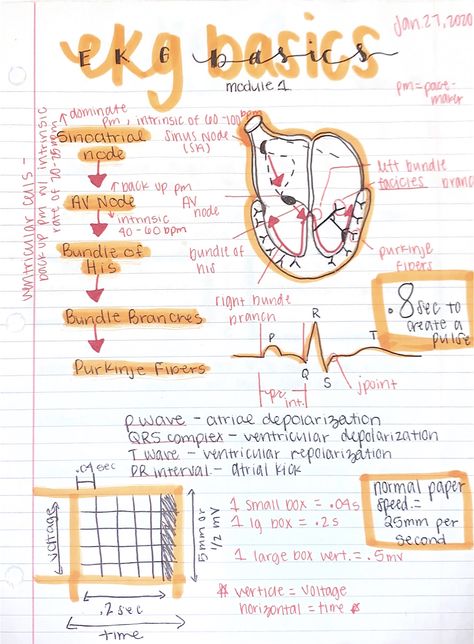 Jan. 27, 2020
ekg basics
EKG basics
module 1
pm = pace-
maker
↑ dominate
pm, intrinsic of 60-100 bpm
Sinoatrial
node
Sinus Node
(SA)
ventricular cells -
back up pm w/ intrinsic
rate of 20-25 bpm
AV Node
↑ back up pm
↓ intrinsic
40-60 bpm
AV
node
left bundle
facicies branch
Bundle of
His
bundle of
his
purkinje
fibers
right bundle
branch
Bundle Branches
Purkinje Fibers
.8 sec to
create a
pulse
P
Q
R
S
T
jpoint
pr
int.
p wave - atriae depolarization
QRS complex - ventricular depolarization
T wave - ventricular repolarization
PR interval - atrial kick
.04 sec
voltage
5mm or
1/2 mV
.2 sec
time
1 small box = .04s
1 lg box = .2s
1 large box vert. = .5mv
* verticle = voltage
horizontal = time *
normal paper
speed. =
25mm per
second